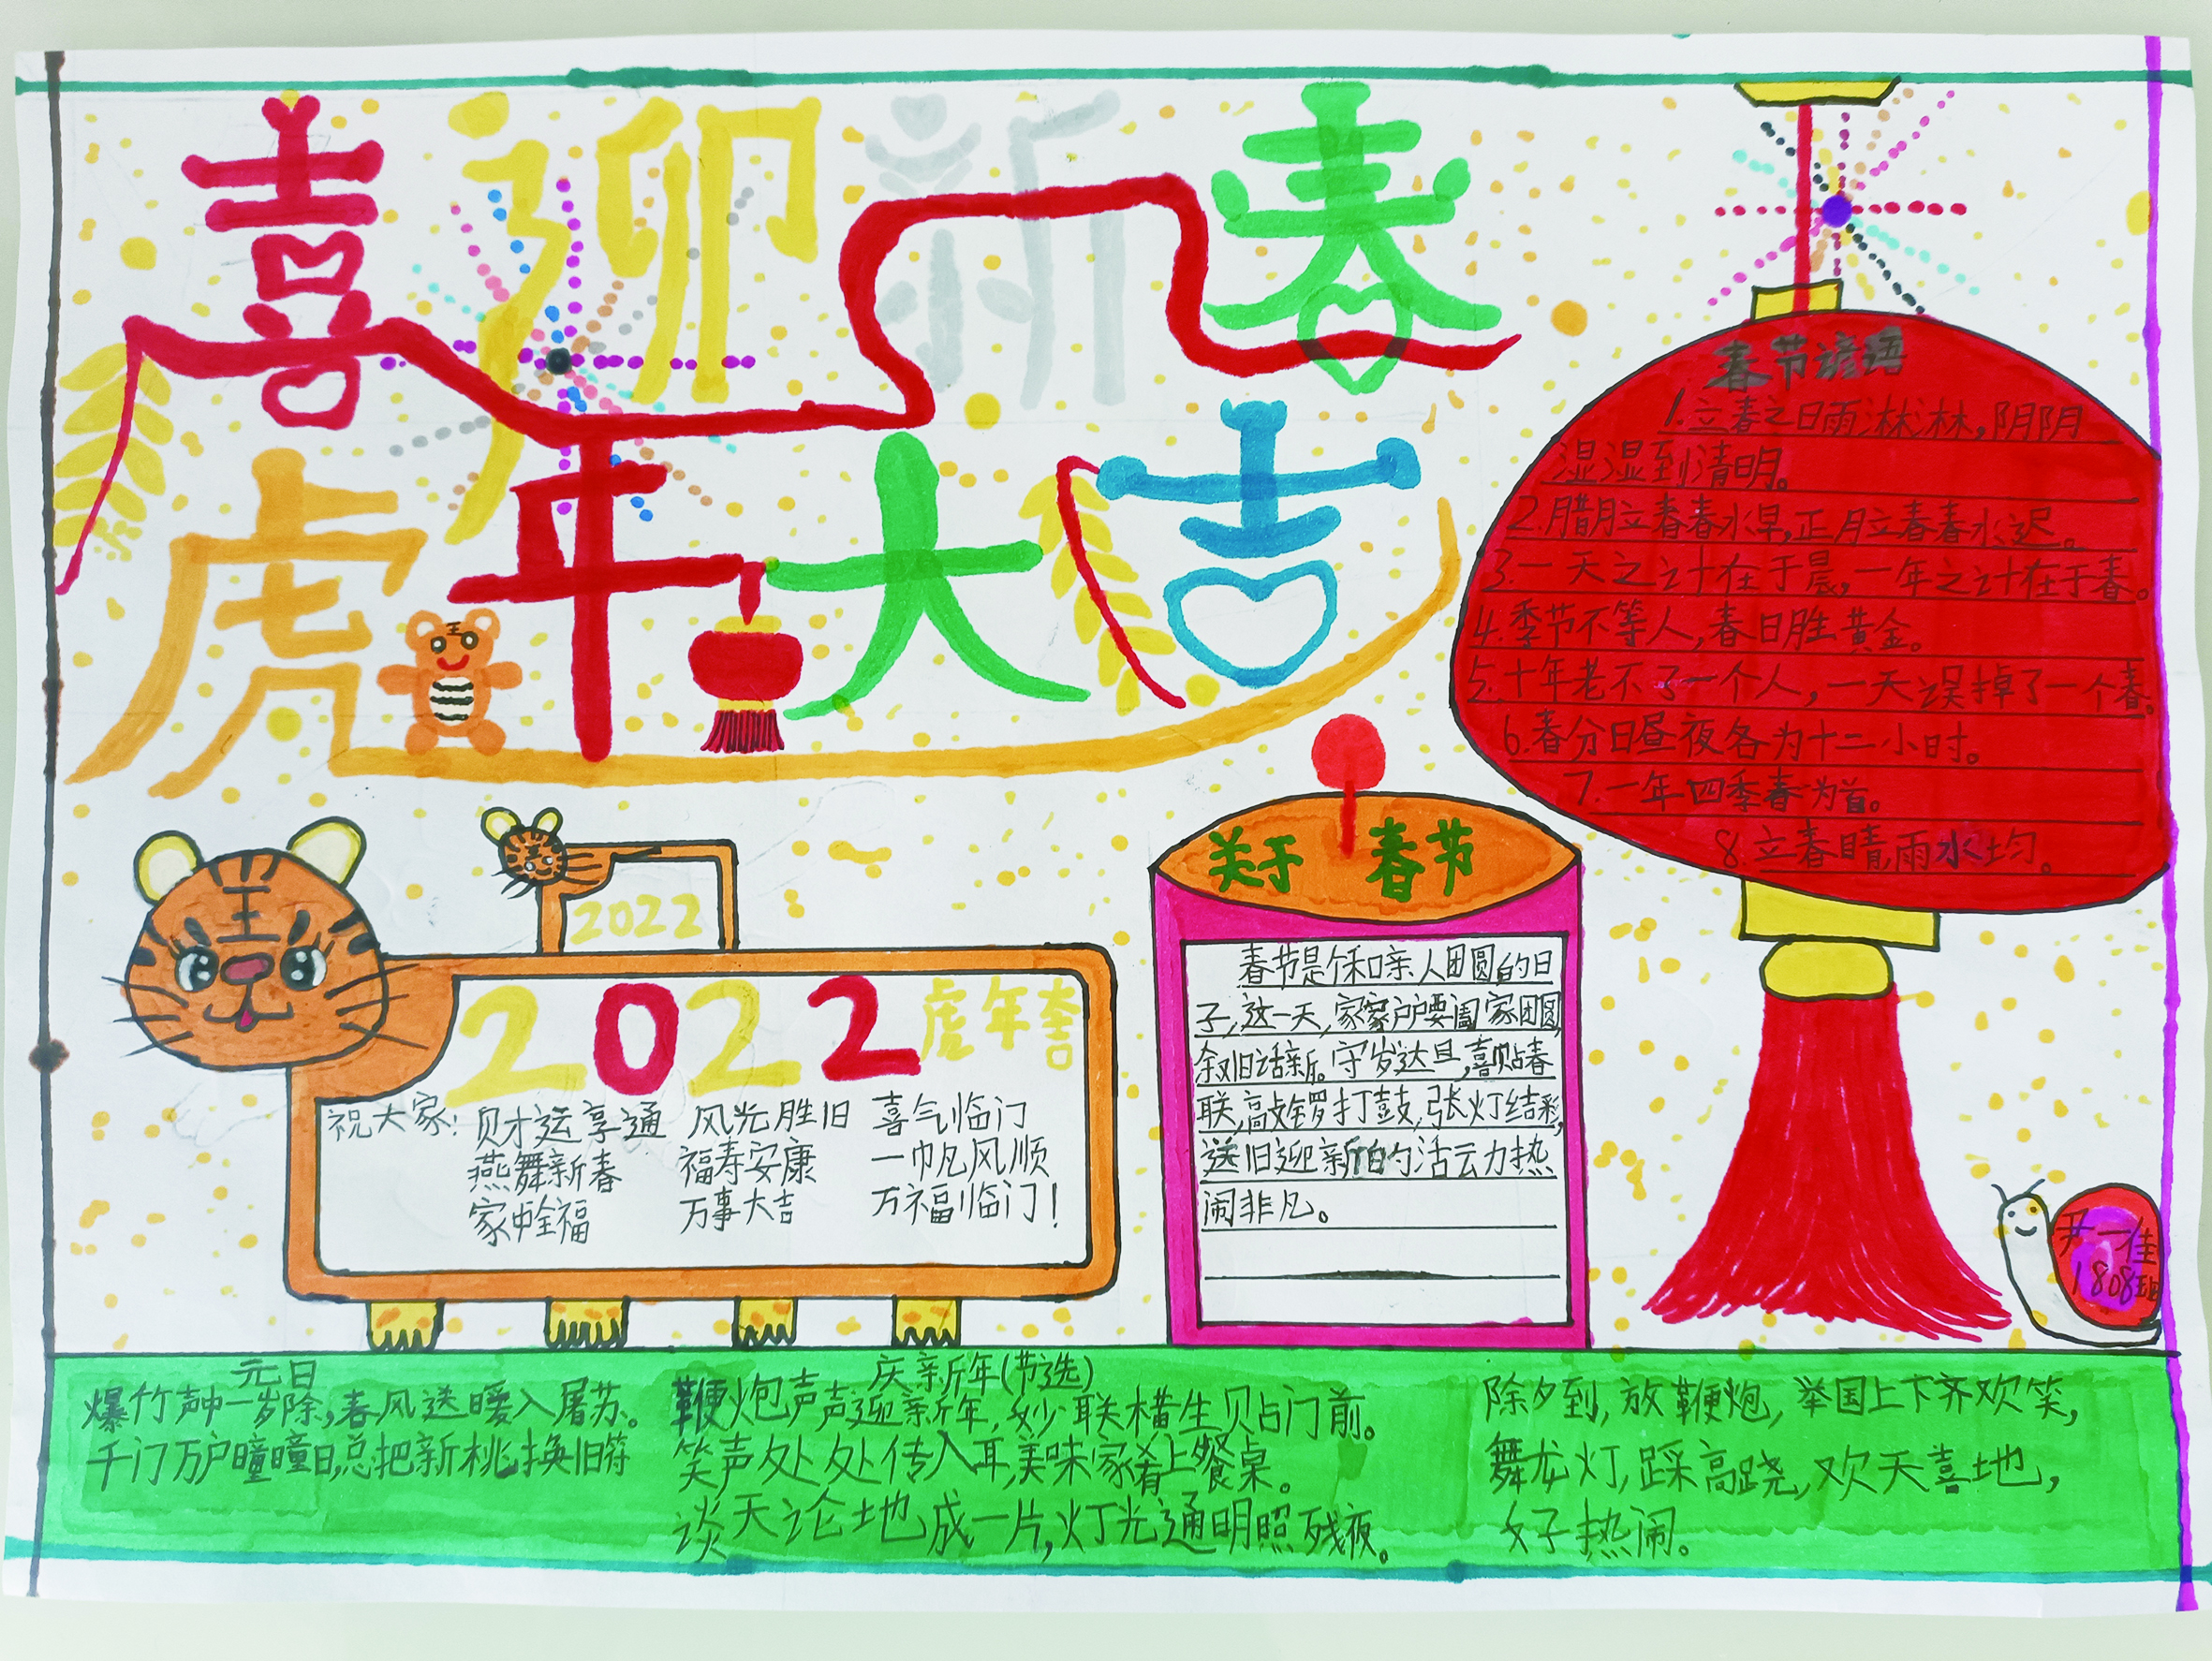 喜迎新春
虎年大吉
春节谚语
1.立春之日雨淋淋,阴阴
湿湿到清明。
2.腊月立春春水早,正月立春春水迟。
3.一天之计在于晨,一年之计在于春。
4.季节不等人,春日胜黄金。
5.十年老不了一个人,一天误掉了一个春。
6.春分日昼夜各为十二小时。
7.一年四季春为首。
8.立春晴,雨水均。
2022
2022虎年大吉
祝大家:财运享通 风光胜旧 喜气临门
燕舞新春 福寿安康 一帆风顺
家中全福 万事大吉 万福临门!
关于春节
春节是个和亲人团圆的日
子,这一天,家家户户要阖家团圆
叙旧话新。守岁达旦,喜贴春
联,敲锣打鼓,张灯结彩,
送旧迎新的活动热
闹非凡。
尹一佳
1808班
元日
爆竹声中一岁除,春风送暖入屠苏。
千门万户曈曈日,总把新桃换旧符
庆新年(节选)
鞭炮声声迎新年,妙联横生贴门前。
笑声处处传入耳,美味家肴上餐桌。
谈天论地成一片,灯光通明照残夜。
除夕到,放鞭炮,举国上下齐欢笑,
舞龙灯,踩高跷,欢天喜地,
好热闹。